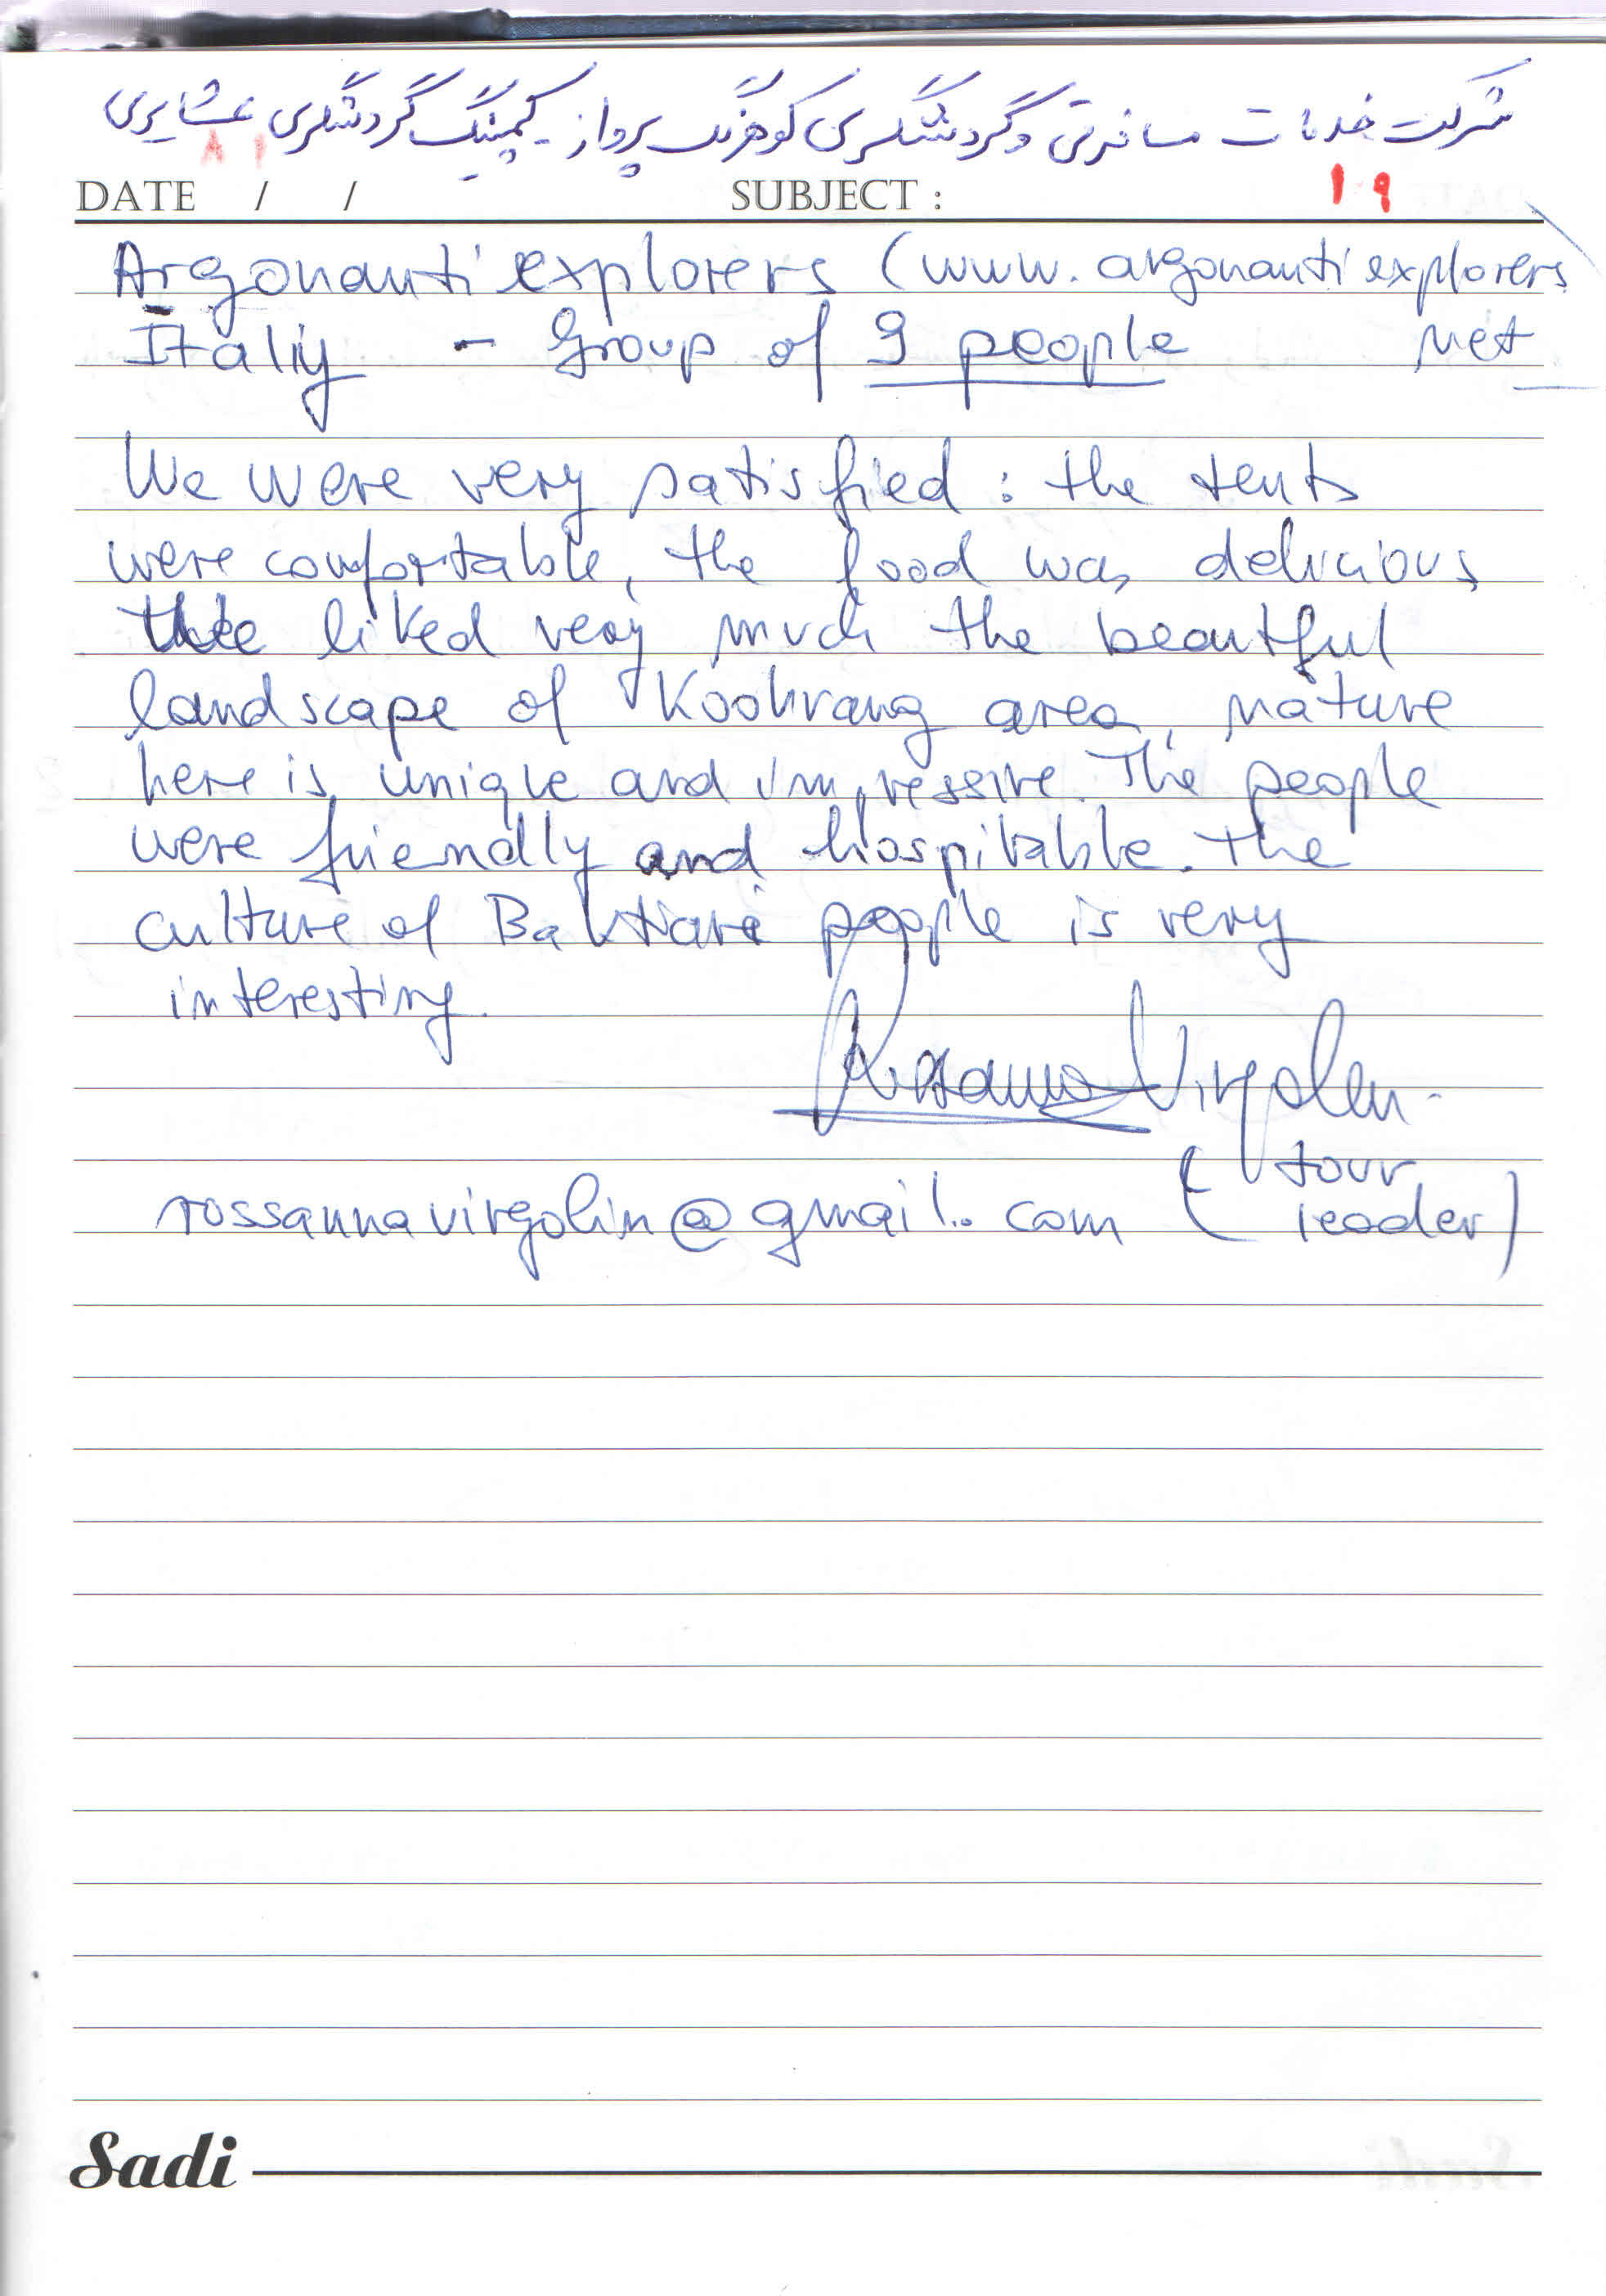 شرکت خدمات مسافرتی و گردشگری کوهرنگ پرواز - کمپینگ گردشگری عشایری
DATE / / SUBJECT : ۱۹
Argonauti explorers (www. argonautiexplorers
Italiy - Group of 9 people net
We were very satisfied : the tents
were comfortable, the food was delicious
We liked very much the beautiful
landscape of Koohrang area, nature
here is unique and impressive. The people
were friendly and hospitable. The
culture of Baktiari people is very
interesting.
Rossanna Virgolin
(tour
rossannavirgolin@gmail.com leader)
Sadi